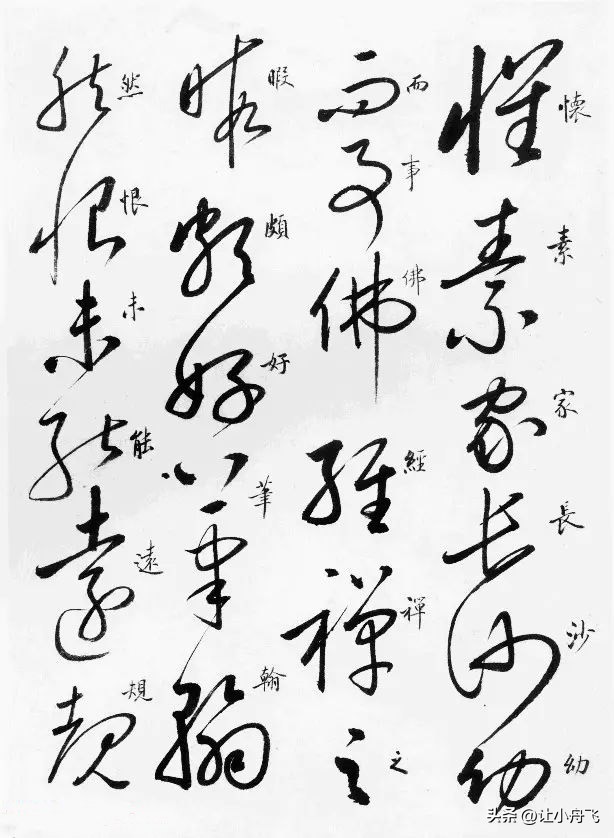 懷素家長沙幼
而事佛經禪之
暇頗好筆翰
然恨未能遠規
头条 @让小舟飞